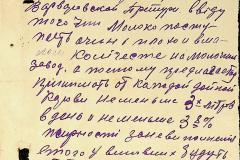 Варваровской Артели ввиду
того что Молоко посту
пает очень плохо и в ма
лом Количестве на Молочный
завод. а поэтому предлагает
от Каждой дойной
Коровы не меньше 3х литров
в день и не меньше 3,8%
жирности за невыполнение
этого у виновных будут